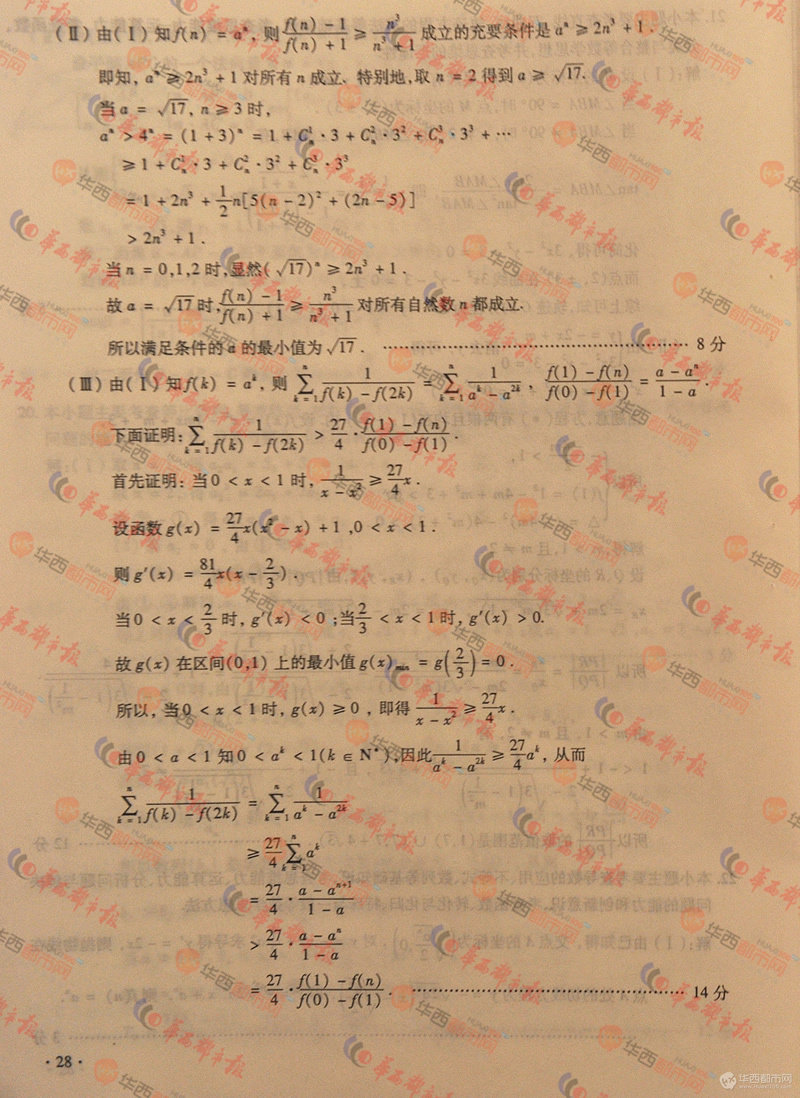 (Ⅱ)由(Ⅰ)知f(n) = aⁿ, 则 (f(n) - 1)/(f(n) + 1) ≥ n³/(n³ + 1) 成立的充要条件是aⁿ ≥ 2n³ + 1.
即知, aⁿ ≥ 2n³ + 1对所有n成立. 特别地,取 n = 2得到a ≥ √17.
当a = √17, n ≥ 3时,
aⁿ > 4ⁿ = (1 + 3)ⁿ = 1 + C¹ₙ·3 + C²ₙ·3² + C³ₙ·3³ + ⋯
≥ 1 + C¹ₙ·3 + C²ₙ·3² + C³ₙ·3³
= 1 + 2n³ + (1/2)n[5(n - 2)² + (2n - 5)]
> 2n³ + 1.
当n = 0,1,2时,显然(√17)ⁿ ≥ 2n³ + 1.
故a = √17时, (f(n) - 1)/(f(n) + 1) ≥ n³/(n³ + 1) 对所有自然数n都成立.
所以满足条件的a的最小值为√17. ⋯⋯⋯⋯ 8分
(Ⅲ)由(Ⅰ)知f(k) = aᵏ, 则 ∑ₖ₌₁ⁿ 1/(f(k) - f(2k)) = ∑ₖ₌₁ⁿ 1/(aᵏ - a²ᵏ), (f(1) - f(n))/(f(0) - f(1)) = (a - aⁿ)/(1 - a).
下面证明: ∑ₖ₌₁ⁿ 1/(f(k) - f(2k)) > 27/4 · (f(1) - f(n))/(f(0) - f(1)).
首先证明: 当0 < x < 1时, 1/(x - x²) ≥ (27/4)x.
设函数g(x) = (27/4)x(x² - x) + 1, 0 < x < 1.
则g′(x) = (81/4)x(x - 2/3).
当0 < x < 2/3 时, g′(x) < 0; 当 2/3 < x < 1时, g′(x) > 0.
故g(x)在区间(0,1)上的最小值g(x)min = g(2/3) = 0.
所以, 当0 < x < 1时, g(x) ≥ 0, 即得 1/(x - x²) ≥ (27/4)x.
由0 < a < 1知0 < aᵏ < 1(k ∈ N*),因此 1/(aᵏ - a²ᵏ) ≥ (27/4)aᵏ, 从而
∑ₖ₌₁ⁿ 1/(f(k) - f(2k)) = ∑ₖ₌₁ⁿ 1/(aᵏ - a²ᵏ)
≥ 27/4 ∑ₖ₌₁ⁿ aᵏ
= 27/4 · (a - aⁿ⁺¹)/(1 - a)
> 27/4 · (a - aⁿ)/(1 - a)
= 27/4 · (f(1) - f(n))/(f(0) - f(1)). ⋯⋯⋯⋯ 14分
· 28 ·
华西都市网